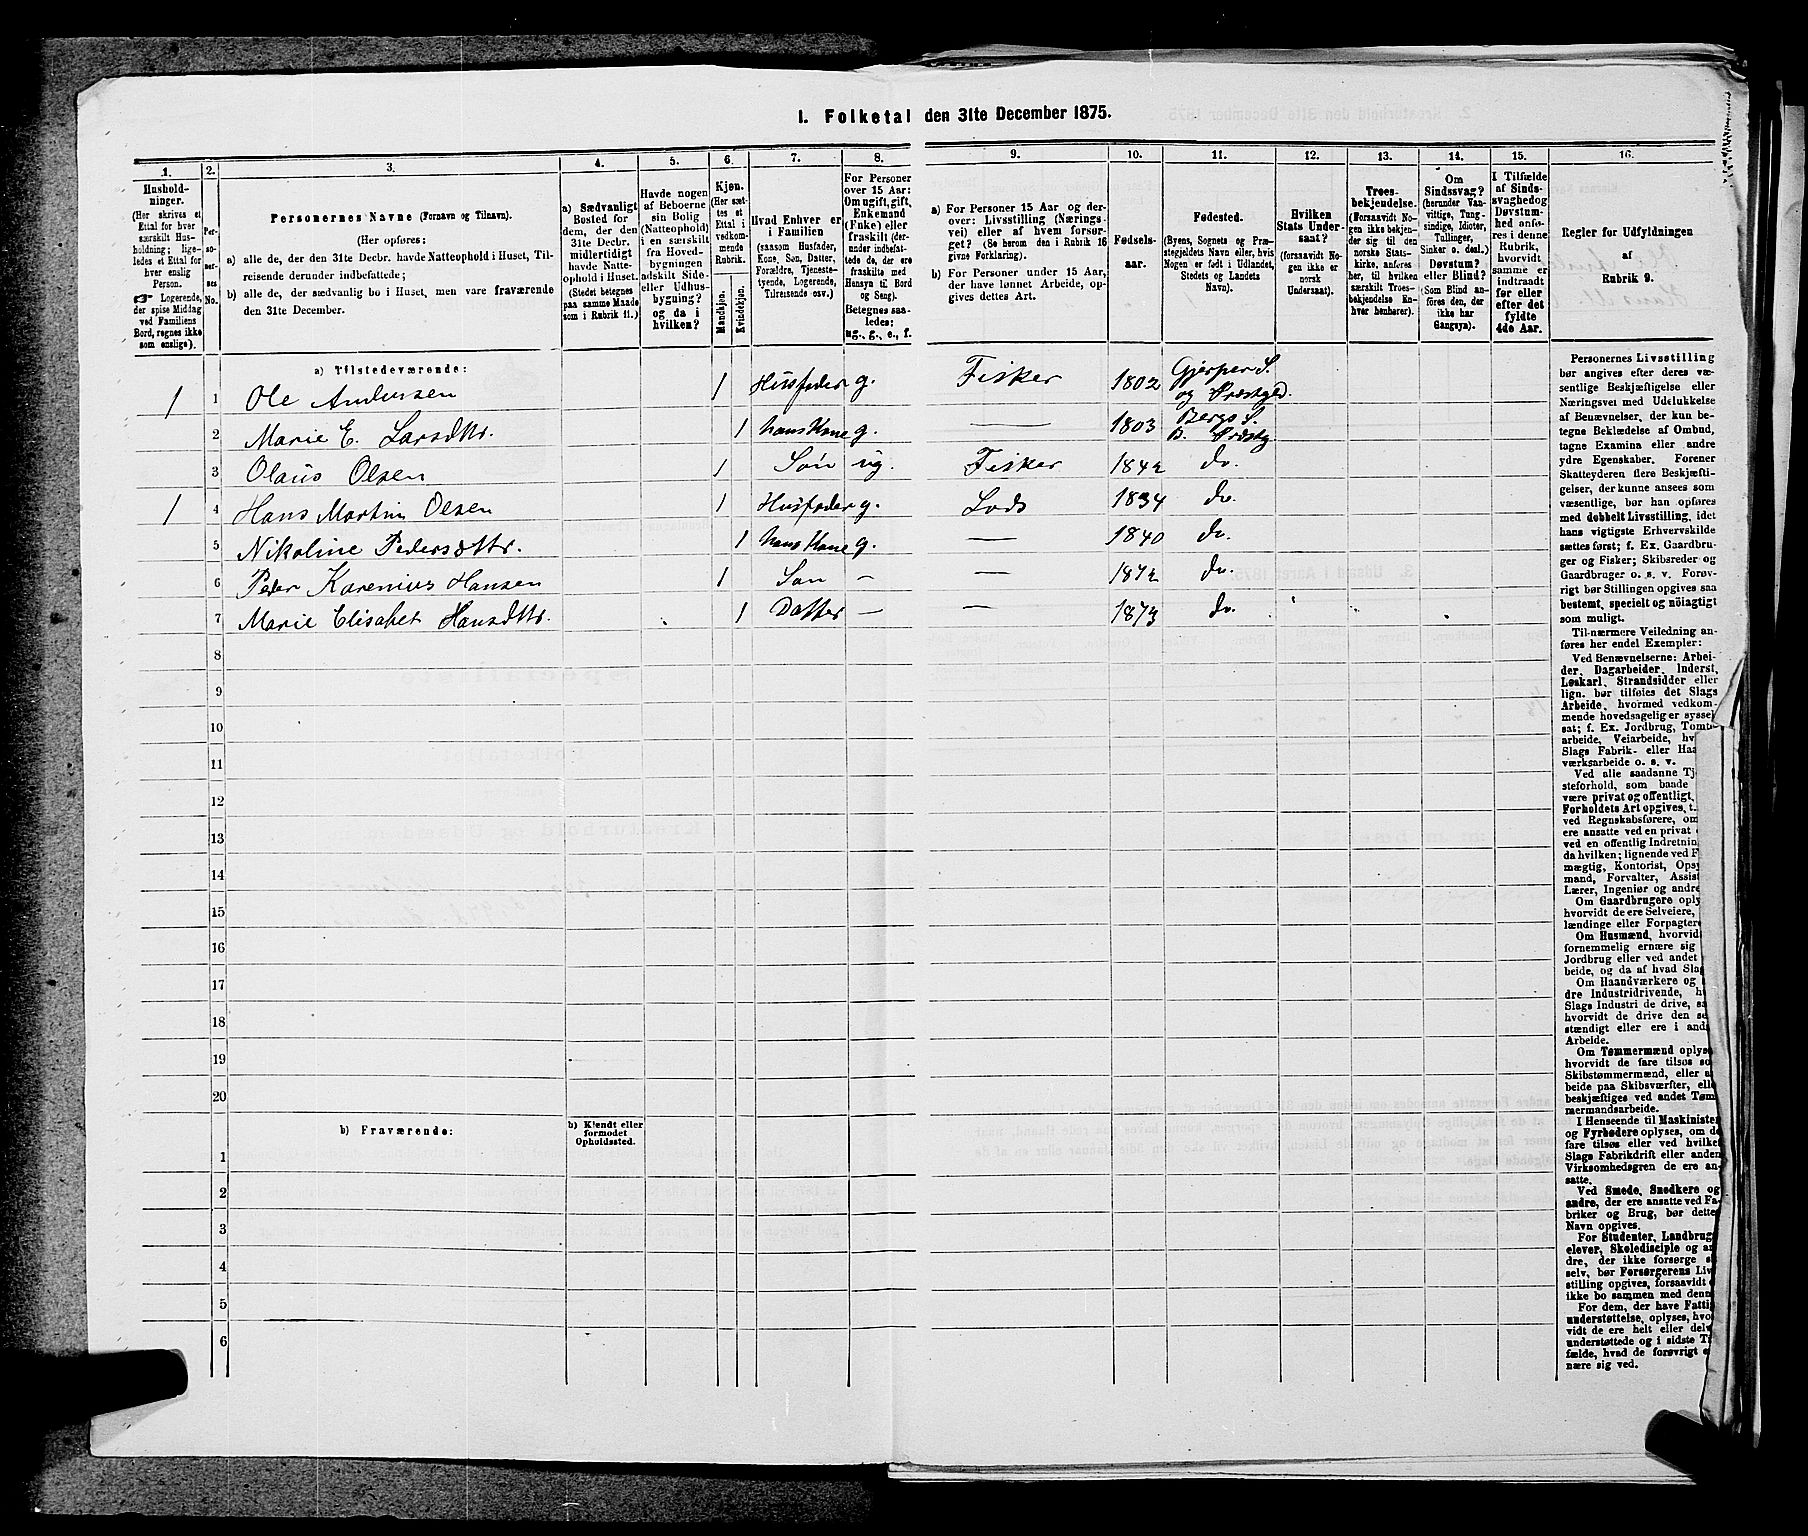 1. Folketal den 31te December 1875.
1.
Hushold-
ninger.
(Her skrives et
Ettal for hver
særskilt Hus-
holdning; lige-
ledes et Ettal for
hver enslig
Person.
☞ Logerende,
der spise Middag
ved Familiens
Bord, regnes ikke
som enslige).
2.
Per-
so-
ner-
nes
No.
3.
Personernes Navne (Fornavn og Tilnavn).
(Her opføres:
a) alle de, der den 31te Decbr. havde Natteophold i Huset, Til-
reisende derunder indbefattede;
b) alle de, der sædvanlig bo i Huset, men vare fraværende
den 31te December.
4.
a) Sædvanligt
Bosted for
dem, der den
31te Decbr.
midlertidigt
havde Natte-
ophold i Huset.
(Stedet betegnes
paa samme Maade
som i Rubrik 11.)
5.
Havde nogen
af Beboerne
sin Bolig
(Natteophold)
i en særskilt
fra Hoved-
bygningen
adskilt Side-
eller Udhus-
bygning?
og da i
hvilken?
6.
Kjøn.
(Her sæt-
tes et
Ettal i
vedkom-
mende
Rubrik.
Mandkjøn.
Kvindekjøn.
7.
Hvad Enhver er
i Familien
(saasom Husfader,
Kone, Søn, Datter,
Forældre, Tjeneste-
tyende, Logerende,
Tilreisende osv.)
8.
For Personer
over 15 Aar:
Om ugift, gift,
Enkemand
(Enke) eller
fraskilt (der-
under indbefat-
tede de, der ere
fraskilte med
Hensyn til Bord
og Seng).
Betegnes saa-
ledes:
ug., g., e., f.
9.
a) For Personer 15 Aar og der-
over: Livsstilling (Nærings-
vei) eller af hvem forsør-
get? (Se herom den i Rubrik 16
givne Forklaring).
b) For Personer under 15 Aar,
der have lønnet Arbeide, op-
gives dettes Art.
10.
Fødsels-
aar.
11.
Fødested.
(Byens, Sognets og Præ-
stegjeldets Navn eller, hvis
Nogen er født i Udlandet,
Stedets og Landets
Navn).
12.
Hvilken
Stats Under-
saat?
(forsaavidt No-
gen ikke er
norsk
Undersaat).
13.
Troes-
bekjendelse.
(Forsaavidt No-
gen ikke bekjen-
der sig til den
norske Stats-
kirke, anføres
her, til hvilken
særskilt Troes-
bekjendelse En-
hver henhører).
14.
Om
Sindssvag?
(herunder Van-
vittige, Tung-
sindige, Idioter,
Tullinger,
Sinker o. desl.)
Døvstum?
eller Blind?
(Som Blind an-
føres den, der
ikke har
Gangsyn).
15.
I Tilfælde
af Sinds-
svaghed og
Døvstum-
hed anfø-
res i denne
Rubrik,
hvorvidt
samme er
indtraadt
før eller
efter det
fyldte
4de Aar.
16.
Regler for Udfyldningen
af
Rubrik 9.
a) Tilstedeværende:
1 1 Ole Andersen 1 Husfader g. Fisker 1802 Gjerpen S. og Præstgjd.
2 Marie E. Larsdtr. 1 hans Kone g. — 1803 Bergs S. B. Præstg.
3 Olaus Olsen 1 Søn ug. Fisker 1842 do.
1 4 Hans Martin Olsen 1 Husfader g. Lods 1834 do.
5 Nikoline Pedersdttr. 1 hans Kone g. — 1840 do.
6 Peder Karenius Hansen 1 Søn — — 1872 do.
7 Marie Elisabet Hansdttr. 1 Datter — — 1873 do.
8
9
10
11
12
13
14
15
16
17
18
19
20
b) Fraværende:
b) Kjendt eller
formodet
Opholdssted.
1
2
3
4
5
6
Personernes Livsstilling
bør angives efter deres væ-
sentlige Beskjæftigelse eller
Næringsvei med Udelukkelse
af Benævnelser, der kun be-
tegne Beklædelse af Ombud,
tagne Examina eller andre
ydre Egenskaber. Forener
Skatteyderen flere Beskjæfti-
gelser, der kunne ansees som
væsentlige, bør han opføres
med dobbelt Livsstilling, idet
hans vigtigste Erhvervskilde
sættes først; f. Ex. Gaardbru-
ger og Fisker; Skibsreder og
Gaardbruger o. s. v. Forøv-
rigt bør Stillingen opgives saa
bestemt, specielt og nöiagtigt
som muligt.
Til nærmere Veiledning an-
føres her endel Exempler:
Ved Benævnelserne: Arbei-
der, Dagarbeider, Inderst,
Løskarl, Strandsidder eller
lign. bør tilføies det Slags
Arbeide, hvormed vedkom-
mende hovedsagelig er syssel-
sat; f. Ex. Jordbrug, Tomt-
arbeide, Veiarbeide, hv
Slags Fabrik- eller Haa
værksarbeide o. s. v.
Ved alle saadanne Tj
steforhold, som baade
være privat og offentligt,
Forholdets Art opgives, t.
ved Regnskabsførere, om
ere ansatte ved en privat e
ved en offentlig Indretnin
da hvilken; lignende ved F
mægtig, Kontorist, Opsy
mand, Forvalter, Assist
Lærer, Ingeniør og andre
Om Gaardbrugere oply
hvorvidt de ere Selveiere,
lændinge eller Forpagtere
Om Husmænd, hvorvid
fornemmelig ernære sig
Jordbrug eller ved andet
beide, og da af hvad Slag
Om Haandværkere og
dre Industridrivende, h
Slags Industri de drive, sa
hvorvidt de drive den se
stændigt eller ere i and
Arbeide.
Om Tømmermænd oplyse
hvorvidt de fare tilsøs so
Skibstømmermænd, eller a
beide paa Skibsværfter, elle
beskjæftiges ved andet Tøm
mermandsarbeide.
I Henseende til Maskinister
og Fyrbødere oplyses, om de
fare tilsøs eller ved hvilket
Slags Fabrikdrift eller anden
Virksomhedsgren de ere an-
satte.
Ved Smede, Snedkere og
andre, der ere ansatte ved Fa-
briker og Brug, bør dettes
Navn opgives.
For Studenter, Landbrugs
elever, Skoledisciple og an
dre, der ikke forsørge s
selv, bør Forsørgerens Liv
stilling opgives, forsaavidt
ikke bo sammen med denn
For dem, der have Fattig
understøttelse, oplyses, hvo
vidt de ere helt eller delv
understøttede og i sidste T
fælde, hvad de forøvrigt e
nære sig ved.